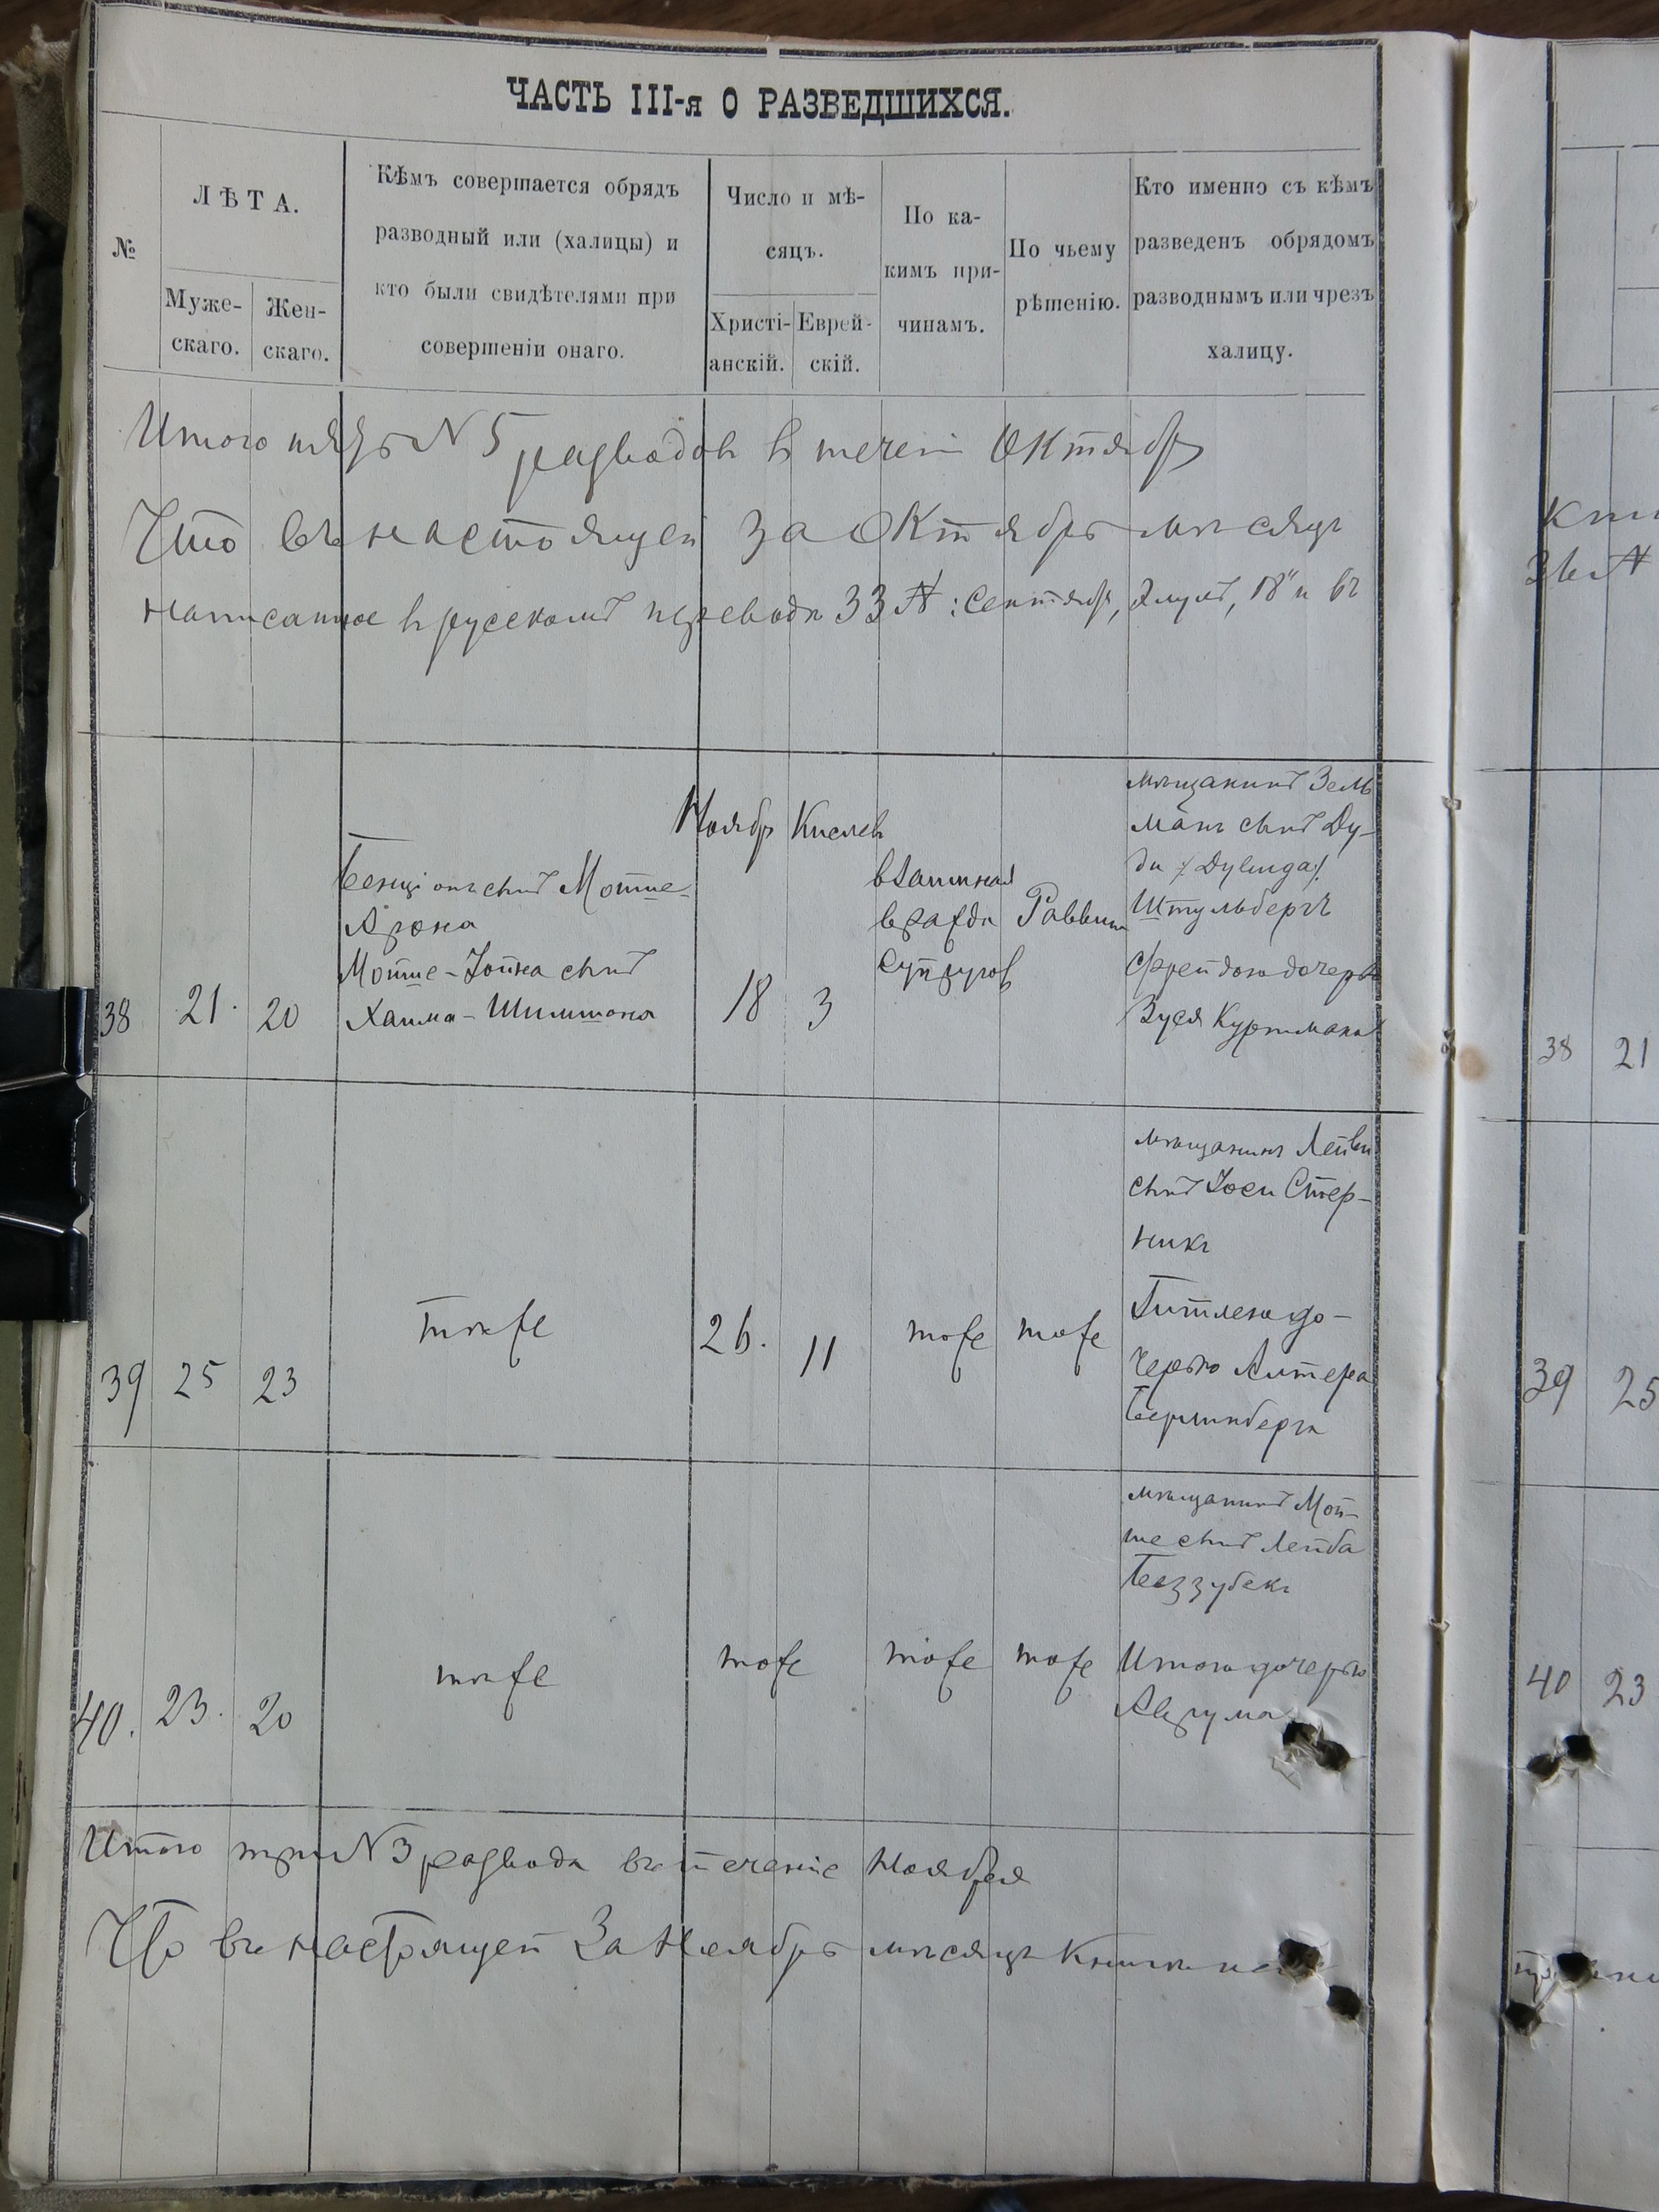 ЧАСТЬ III-я О РАЗВЕДШИХСЯ.
№
ЛѢТА.
Муже-
скаго.
Жен-
скаго.
Кѣмъ совершается обрядъ
разводный или (халицы) и
кто были свидѣтелями при
совершеніи онаго.
Число и мѣ-
сяцъ.
Христі-
анскій.
Еврей-
скій.
По ка-
кимъ при-
чинамъ.
По чьему
рѣшенію.
Кто именно съ кѣмъ
разведенъ обрядомъ
разводнымъ или чрезъ
халицу.
Итого пять N 5 разводовъ въ течені Октябр
Что въ настоящей за Октябрь мѣсяцъ
написанное въ русскомъ переводѣ 33 №: Сентябрь, Элулъ, 18" и въ
38
21
20
Бенціонъ сынъ Мотте-
Арона
Мотте-Іойна сынъ
Хаима-Шимшона
Ноябр
18
Кислев
3
взаимная
вражда
супругов
Раввин
мѣщанинъ Зель
манъ сынъ Ду-
ди /Дувида/
Штульбергъ
съ Фрейдою дочерью
Зуся Куртмана
39
25
23
тоже
26.
11
тоже
тоже
мѣщанинъ Лейви
сынъ Іоси Стер-
никъ
Гитлею до-
черью Алтера
Берлинберга
40.
23.
20
тоже
тоже
тоже
тоже
мѣщанинъ Мой-
ше сынъ Лейба
Беззубекъ
Итого дочерью
Аврума
Итого три N 3 развода въ теченіе Ноября
Что въ настоящей за Ноябрь мѣсяцъ Книги
38
21
39
25
40
23